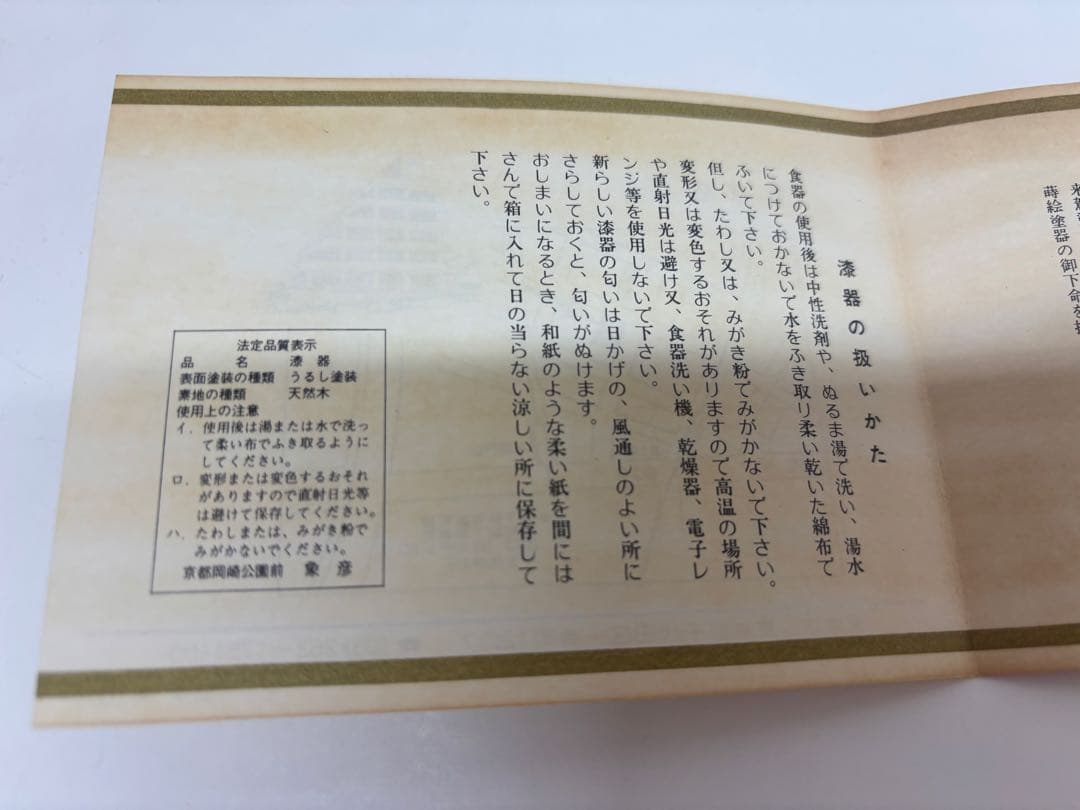 漆器の扱いかた
食器の使用後は中性洗剤や、ぬるま湯で洗い、湯水
につけておかないで水をふき取り柔い乾いた綿布で
ふいて下さい。
但し、たわし又は、みがき粉でみがかないで下さい。
変形又は変色するおそれがありますので高温の場所
や直射日光は避け又、食器洗い機、乾燥器、電子レ
ンジ等を使用しないで下さい。
新らしい漆器の匂いは日かげの、風通しのよい所に
さらしておくと、匂いがぬけます。
おしまいになるとき、和紙のような柔い紙を間には
さんで箱に入れて日の当らない涼しい所に保存して
下さい。
法定品質表示
品 名 漆 器
表面塗装の種類 うるし塗装
素地の種類 天然木
使用上の注意
イ．使用後は湯または水で洗っ
て柔い布でふき取るように
してください。
ロ．変形または変色するおそれ
がありますので直射日光等
は避けて保存してください。
ハ．たわしまたは、みがき粉で
みがかないでください。
京都岡崎公園前 象 彦
蒔絵塗器の御下命を